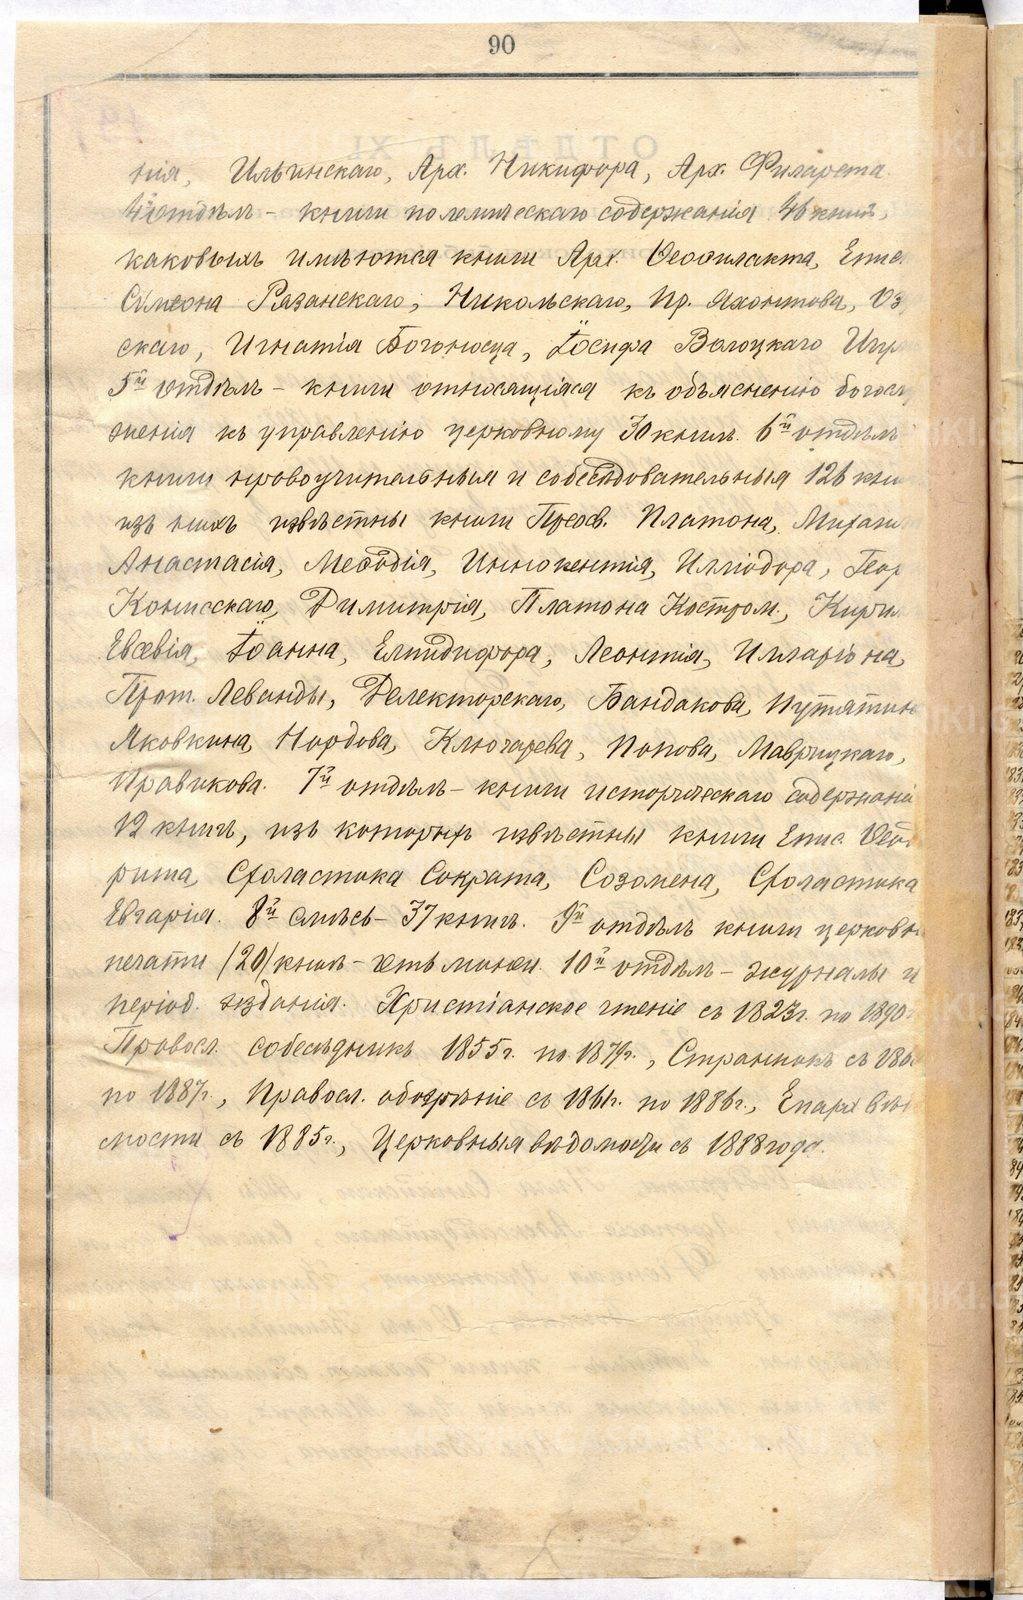 90
нія, Ильинскаго, Арх. Никифора, Арх. Филарета.
4й отдѣлъ – книги полемическаго содержанія 46 книг,
каковыхъ имѣются книги Арх. Ѳеофилакта, Епис
Сѵмеона Рязанскаго, Никольскаго, Пр. Яхонтова, Оз
скаго, Игнатія Богоносца, Іосифа Волоцкаго Игум
5й отдѣлъ – книги относящіяся къ объясненію богосл
женія къ управленію церковному 30 книгъ. 6й отдѣлъ
книги нравоучительныя и собесѣдовательныя 126 кни
изъ нихъ извѣстны книги Преосв. Платона, Михаи
Анастасія, Меѳодія, Иннокентія, Илліодора, Геор
Конисскаго, Димитрія, Платона Костром., Кири
Евсевія, Іоанна, Елпидифора, Леонтія, Илларіона,
Прот. Леванды, Делекторскаго, Бандакова, Путятин
Яковкина, Нордова, Ключарева, Попова, Маврицкаго,
Правикова. 7й отдѣлъ – книги историческаго содержані
12 книгъ, изъ которыхъ извѣстны книги Епис. Ѳеод
рита, Схоластика Сократа, Созомена, Схоластика
Евгарія. 8й смѣсь – 37 книгъ. 9й отдѣлъ книги церковн
печати /20/ книгъ – четь минеи. 10й отдѣлъ – журналы и
період. изданія. Христіанское чтеніе съ 1823г. по 1890г
Правосл. собесѣдникъ 1855г. по 187г., Странникъ съ 186
по 1887г., Правосл. обозрѣніе съ 1861г. по 1886г., Епарх вѣ
мости съ 1885г., Церковныя вѣдомости съ 1888 года.